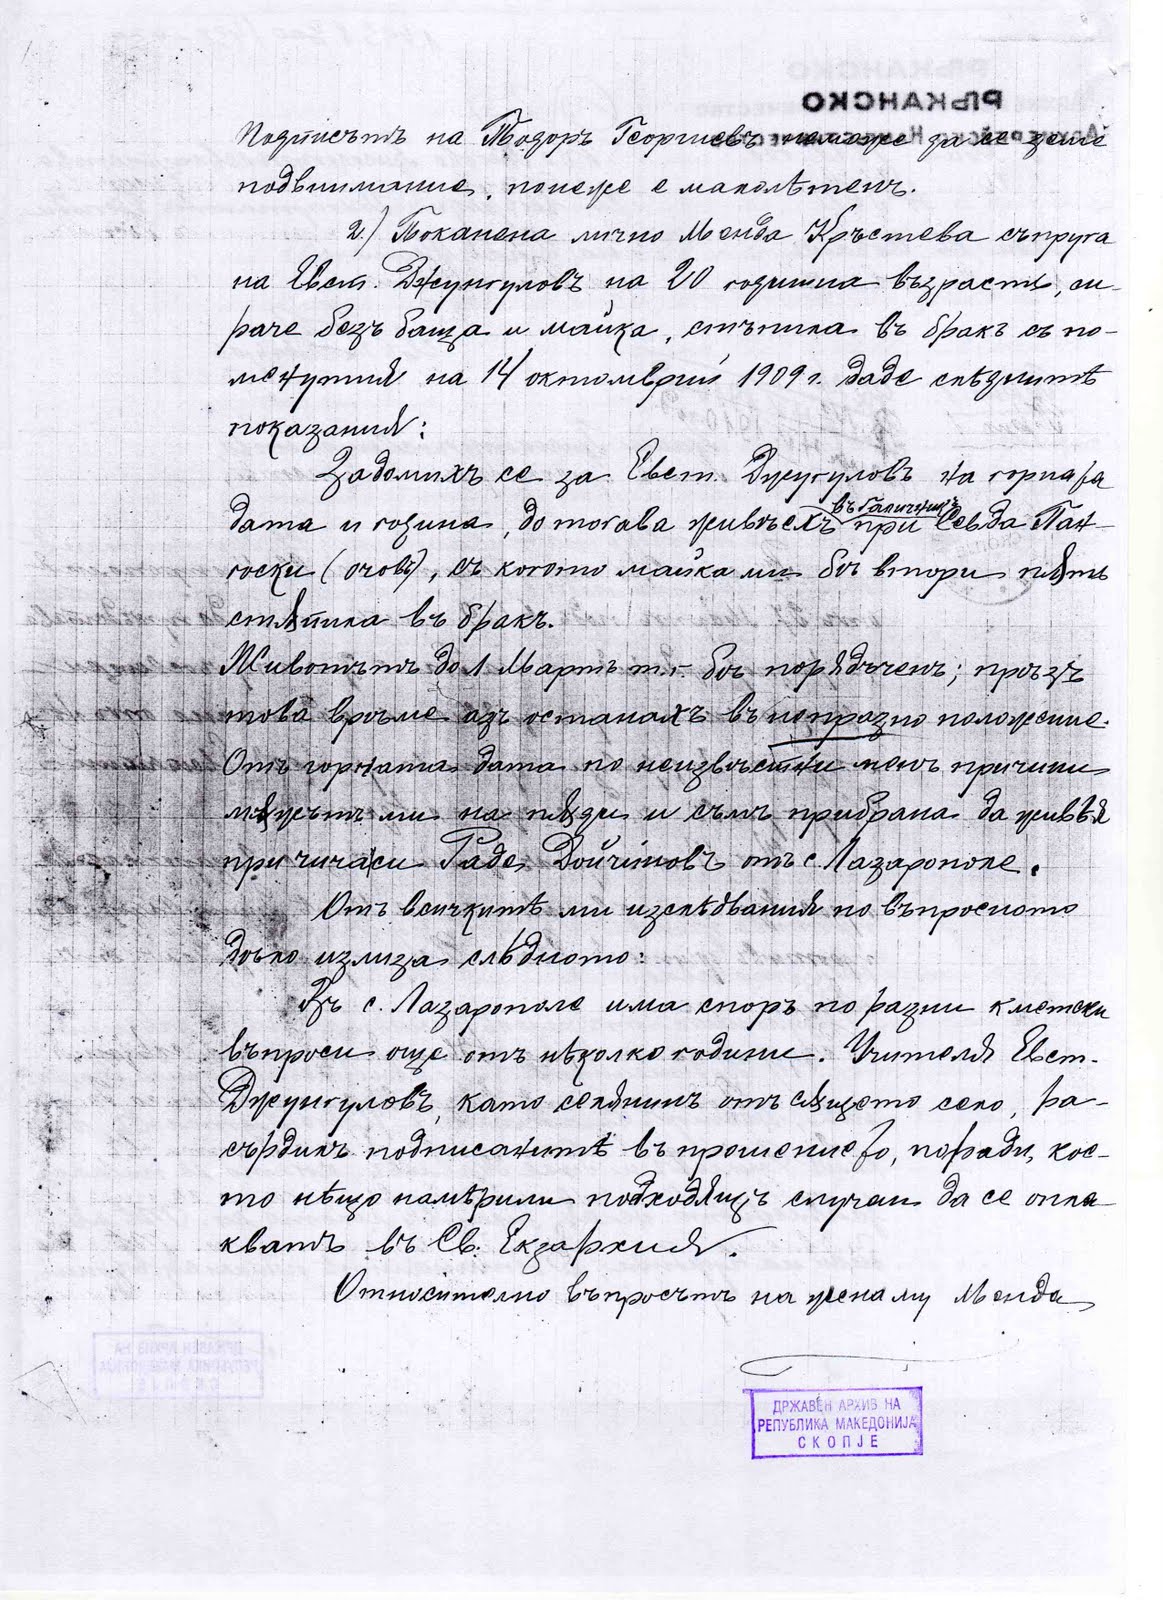 Подписътъ на Тодоръ Георгиевъ неможе да се земе
подвнимание, понеже е маколѣтенъ.
2.) Поканена лично Менда Кръстева съпруга
на Евст. Джунгуловъ на 20 годишна възрасть, си-
раче безъ баща и майка, стъпила въ бракъ съ по-
менутия на 14 октомврий 1909 г. даде слѣднитѣ
показания:
Задомихъ се за Евст. Джунгуловъ на горната
дата и година, до тогава живѣехъ при Севда Пан-
въ Галичникъ
госки (очовъ), съ когото майка ми бѣ втори пѫть
стѫпила въ бракъ.
Животътъ до 1 Мартъ т.г. бѣ порядъченъ; прѣзъ
това врѣме азъ останахъ въ непразно положение.
Отъ горната дата по неизвѣстни менъ причини
мѫжътъ ми на пѫди и съмъ прибрана да живѣя
при чича си Раде Дойчиновъ отъ с. Лазарополе.
Отъ всичкитѣ ми изслѣдвания по въпросното
дѣло излиза слѣдното:
Въ с. Лазарополе има споръ по разни кметски
въпроси още отъ нѣколко години. Учителя Евст.
Джунгуловъ, като селянинъ отъ сѫщето село, ра-
сърдилъ подписанитѣ въ прошението, поради, кое-
то нѣщо намѣрили подходящъ случаи да се опла
кватъ въ Св. Екзархия.
Относително въпросътъ на жена му Менда
ДРЖАВЕН АРХИВ НА
РЕПУБЛИКА МАКЕДОНИЈА
СКОПЈЕ